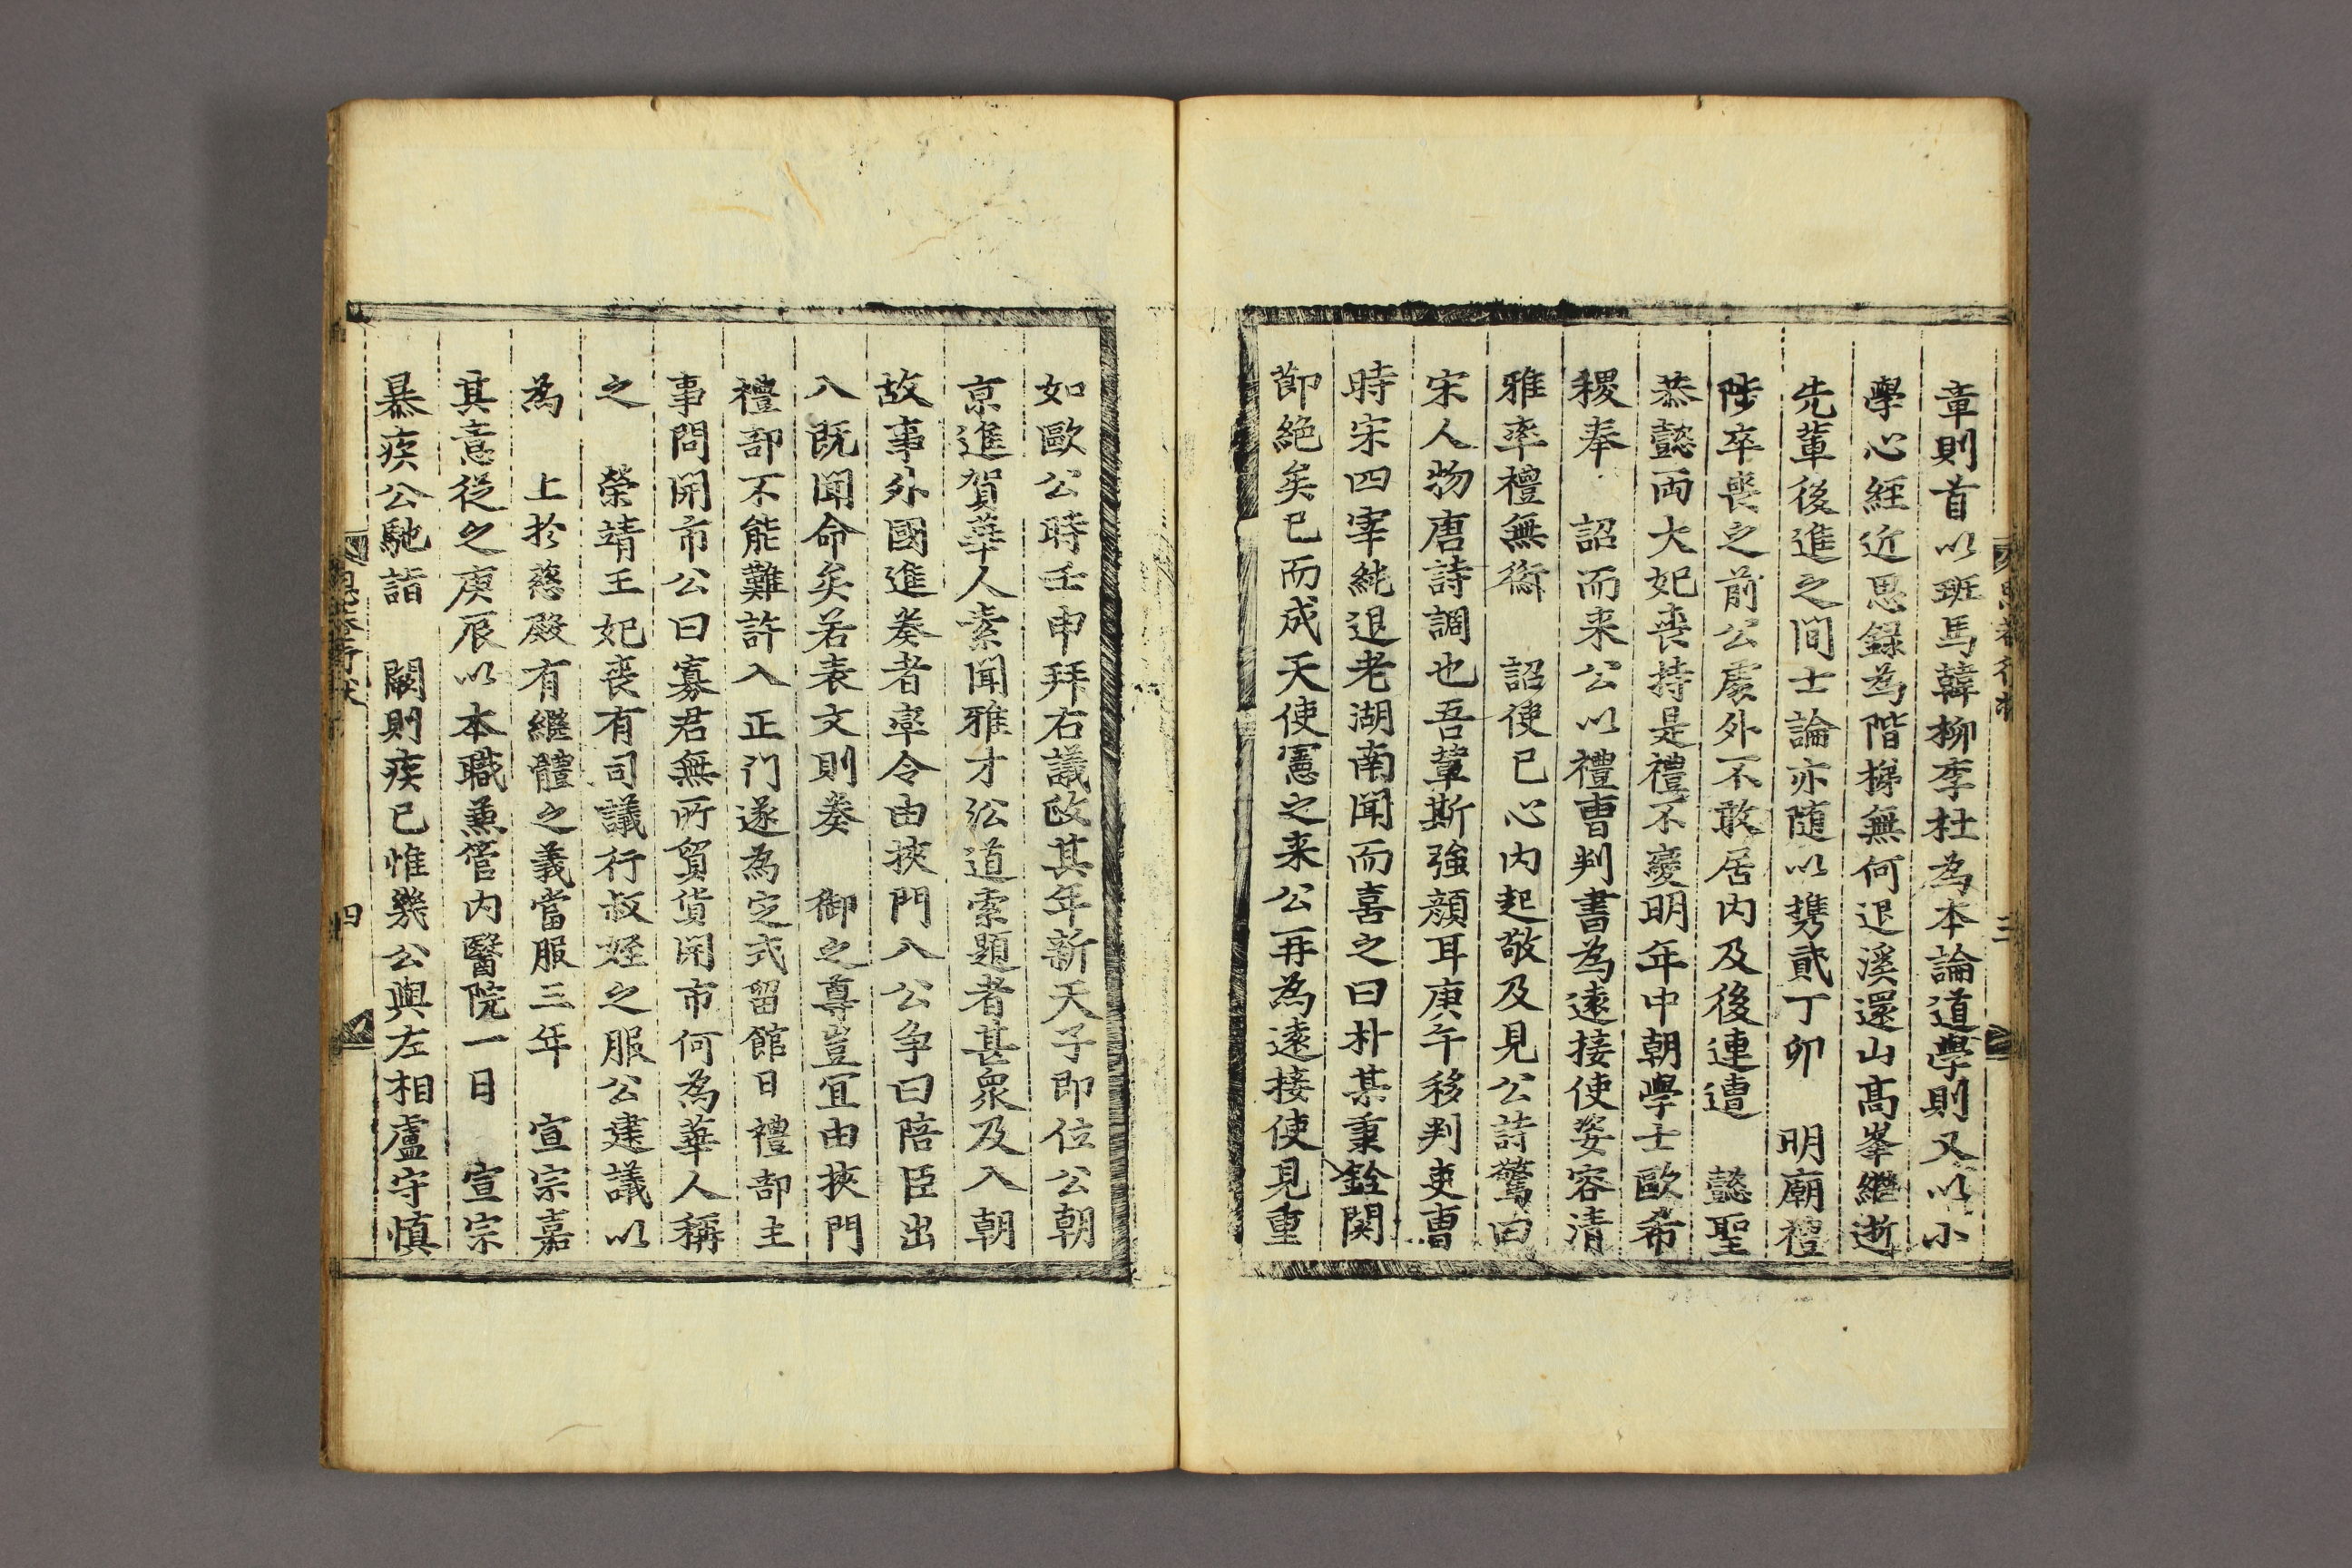 章則首以班馬韓柳李杜為本論道學則又以小
學心經近思録為階梯無何退溪還山高峯繼逝
先軰後進之間士論亦随以携貳丁卯 明廟禮
陟卒喪之前公處外不敢居内及後連遭 懿聖
恭懿両大妃喪持是禮不變明年中朝學士歐希
稷奉 詔而来公以禮曺判書為遠接使姿容清
雅率禮無衞 詔使已心内起敬及見公詩驚曰
宋人物唐詩調也吾軰斯強顔耳庚午移判吏曺
時宋四宰純退老湖南聞而喜之曰朴某秉銓関
節絶矣已而成天使憲之来公再為遠接使見重
如歐公時壬申拜右議政其年新天子即位公朝
京進賀華人素聞雅才沿道索題者甚衆及入朝
故事外國進奏者率令由挾門入公争曰陪臣出
入既聞命矣若表文則奏 御之尊豈冝由挾門
禮部不能難許入正门遂為定式留館日禮部主
事問開市公曰寡君無所貿貨開市何為華人稱
之 榮靖王妃喪有司議行叔姪之服公建議以
為 上於慈殿有繼體之義當服三年 宣宗嘉
其意從之庚辰以本職兼管内醫院一日 宣宗
暴疾公馳詣 闕則疾已惟幾公與左相盧守慎
四